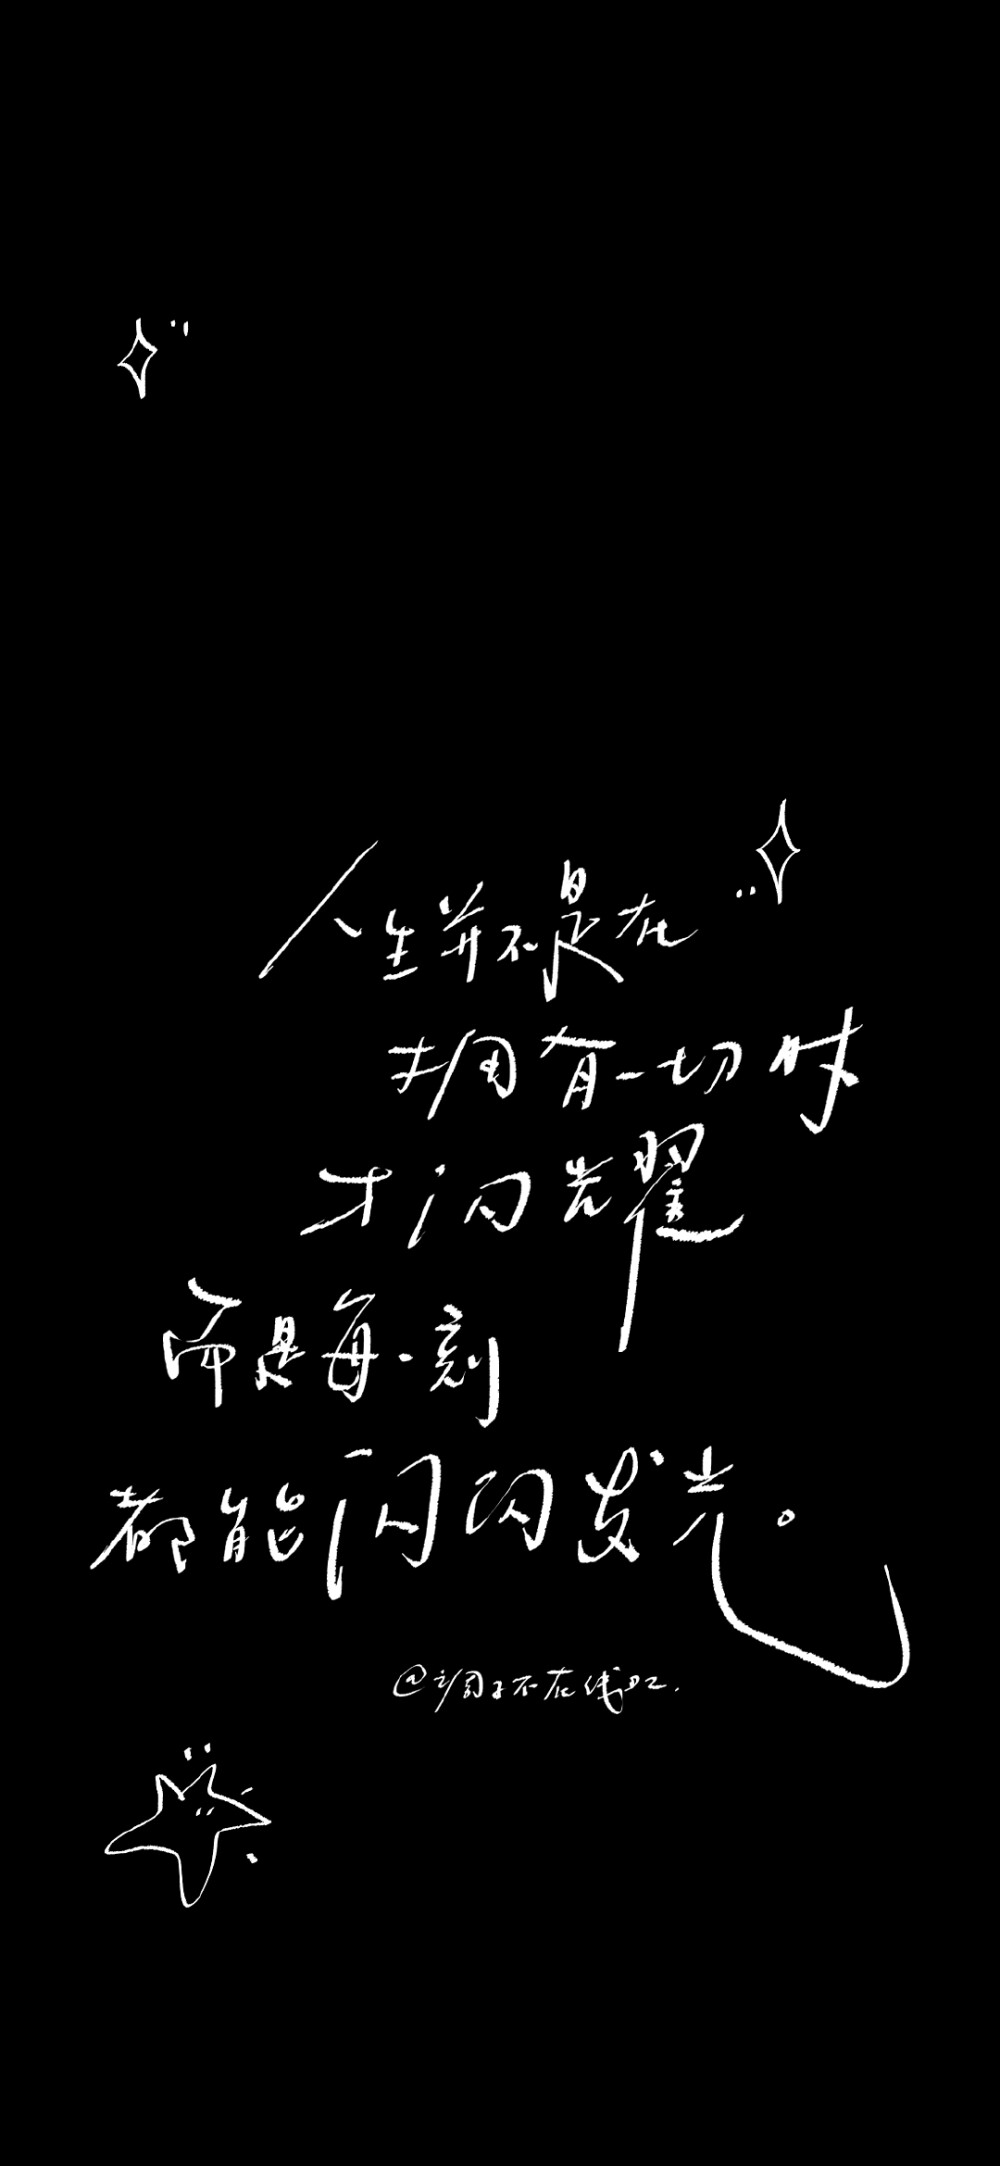 人生并不是在
拥有一切时
才闪光耀
而是每一刻
都能闪闪发光。
不在线